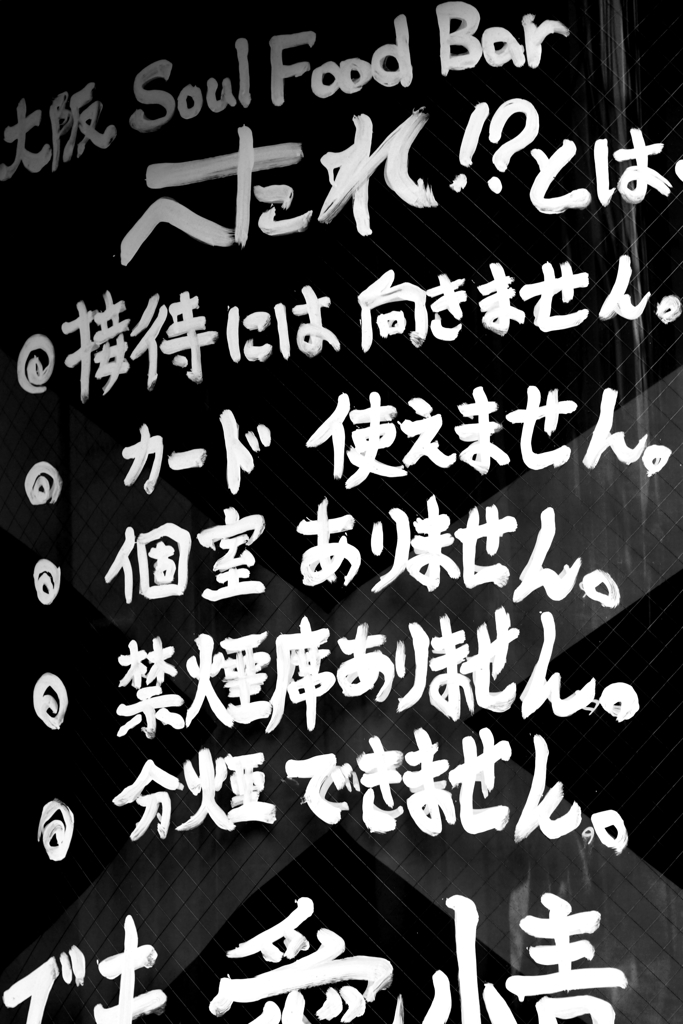 大阪 Soul Food Bar
へたれ!?とは・
◎接待には向きません。
◎カード 使えません。
◎個室 ありません。
◎禁煙席ありません。
◎分煙できません。
でも愛情